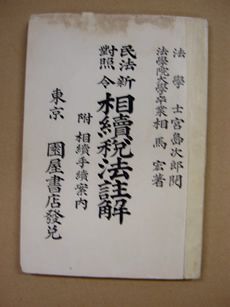 法學士宮島次郎閲
法學院大學卒業相馬宏著
民法對照
新令
相續税法註解
附 相續手續案内
東京 園屋書店發兌